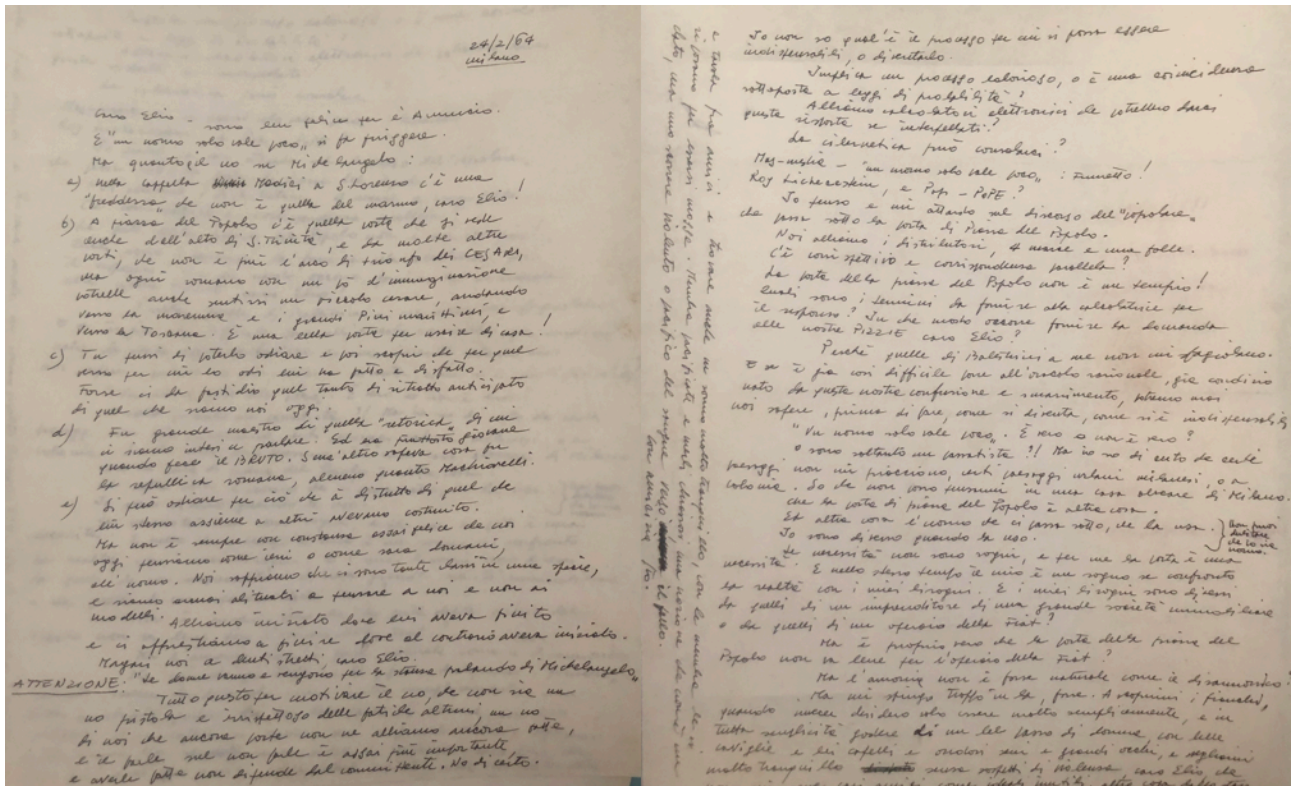 24/2/64
Milano
Caro Elio – sono ben felice per è Annuncio.
E "un uomo solo vale poco„ si fa friggere.
Ma quanto al no su Michelangelo:
a) nella cappella Medici a S. Lorenzo c'è una
"freddezza„ che non è quella del marmo, caro Elio!
b) A piazza del Popolo c'è quella porta che si vede
anche dall'alto di S. Trinità, e da molte altre
parti, che non è più l'arco di trionfo dei CESARI,
ma ogni romano con un pò d'immaginazione
potrebbe anche sentirsi un piccolo cesare, andando
verso la maremma e i grandi Pini marittimi, e
verso la Toscana. È una bella porta per uscire di casa!
c) Tu pensi di poterlo odiare e poi scopri che per quel
verso per cui lo odi lui ha fatto e disfatto.
Forse ci da fastidio quel tanto di ritratto anticipato
di quel che siamo noi oggi.
d) Fu grande maestro di quella "retorica„ di cui
si siamo intesi a parlare. Ed era giovane
quando fece il BRUTO. S'un'altro sapeva cosa fu
la repubblica romana, almeno quanto Machiavelli.
e) Si può odiare per ciò che à distrutto di quel che
lui stesso assieme a altri avevano costruito.
Ma non è sempre con costanza assai felice che noi
oggi pensiamo come ieri o come sarà domani,
all'uomo. Noi sappiamo che ci sono tante
e siamo ormai abituati a pensare a noi e non ai
modelli. Abbiamo iniziato dove lui aveva finito
e ci apprestiamo a finire dove al contrario aveva iniziato.
Magari noi a denti stretti, caro Elio.
ATTENZIONE: "Le donne vanno e vengono per la stanza parlando di Michelangelo„
Tutto questo per motivare il no, che non sia un
no pistola e irrispettoso delle fatiche altrui, un no
di noi che ancora porte non ne abbiamo ancora fatte,
e il farle sul non farle è assai più importante
e averle fatte non dipende dal committente. No di certo.
Io non so qual'è il processo per cui si possa essere
indispensabili, o diventarlo.
Implica un processo laborioso, o è una coincidenza
sottoposta a leggi di probabilità?
Abbiamo calcolatori elettronici che potrebbero darci
questa risposta se interpellati?
La cibernetica può consolarci?
"un uomo solo vale poco„: fumetto!
Roy Lichtenstein, e Pop – PoPE?
Io penso e mi attardo sul discorso del "popolare„
che passa sotto la porta di Piazza del Popolo.
Noi abbiamo i distributori, 4 marce e una folle.
C'è corrispettivo e corrispondenza parallela?
La porta della piazza del Popolo non è un tempio!
Quali sono i termini da fornire alla calcolatrice per
il responso? In che modo occorre fornire la domanda
alle nostre PIZZIE caro Elio?
Perchè quelle di Balestrini a me non mi sfagiolano.
E se è già così difficile porre all'oracolo razionale, già condizio
nato da questa nostra confusione e smarrimento, potremo mai
noi sapere, prima di fare, come si diventa, come si è indispensabili
"Un uomo solo vale poco„. È vero o non è vero?
o sono soltanto un passatista?! Ma io so di certo che certi
paesaggi non mi piacciono, certi paesaggi urbani milanesi, o a
colonia. So che non sono in una casa alveare di Milano.
che la porta di piazza del Popolo è altra cosa.
Ed altra cosa è l'uomo che ci passa sotto, che la usa. } Non puoi
dubitare
che io sia
uomo.
Io sono diverso quando la uso.
Le necessità non sono sogni, e per me la porta è una
necessità. E nello stesso tempo il mio è un sogno se confronto
la realtà con i miei bisogni. E i miei bisogni sono diversi
da quelli di un imprenditore di una grande società immobiliare
o da quelli di un operaio della Fiat?
Ma è proprio vero che la porta della piazza del
Popolo non va bene per l'operaio della Fiat?
Ma l'armonia non è forse naturale come il disarmonico?
Ma mi spingo troppo in la, forse. A scoprirmi i fianchi,
quando invece desidero solo vivere molto semplicemente, e in
tutta semplicità godere di un bel passo di donna, con belle
caviglie e bei capelli e seni e grandi occhi, e svegliarmi
molto tranquillo senza sospetti di violenza caro Elio che
e tavola fra amici e trovare anche un sonno molto tranquillo, con le membra che si
riposano per essersi mosse. Membra pacificate e
dato, ma uno scorrere violento o pacifico del sangue verso il bello.
Con amicizia tuo.